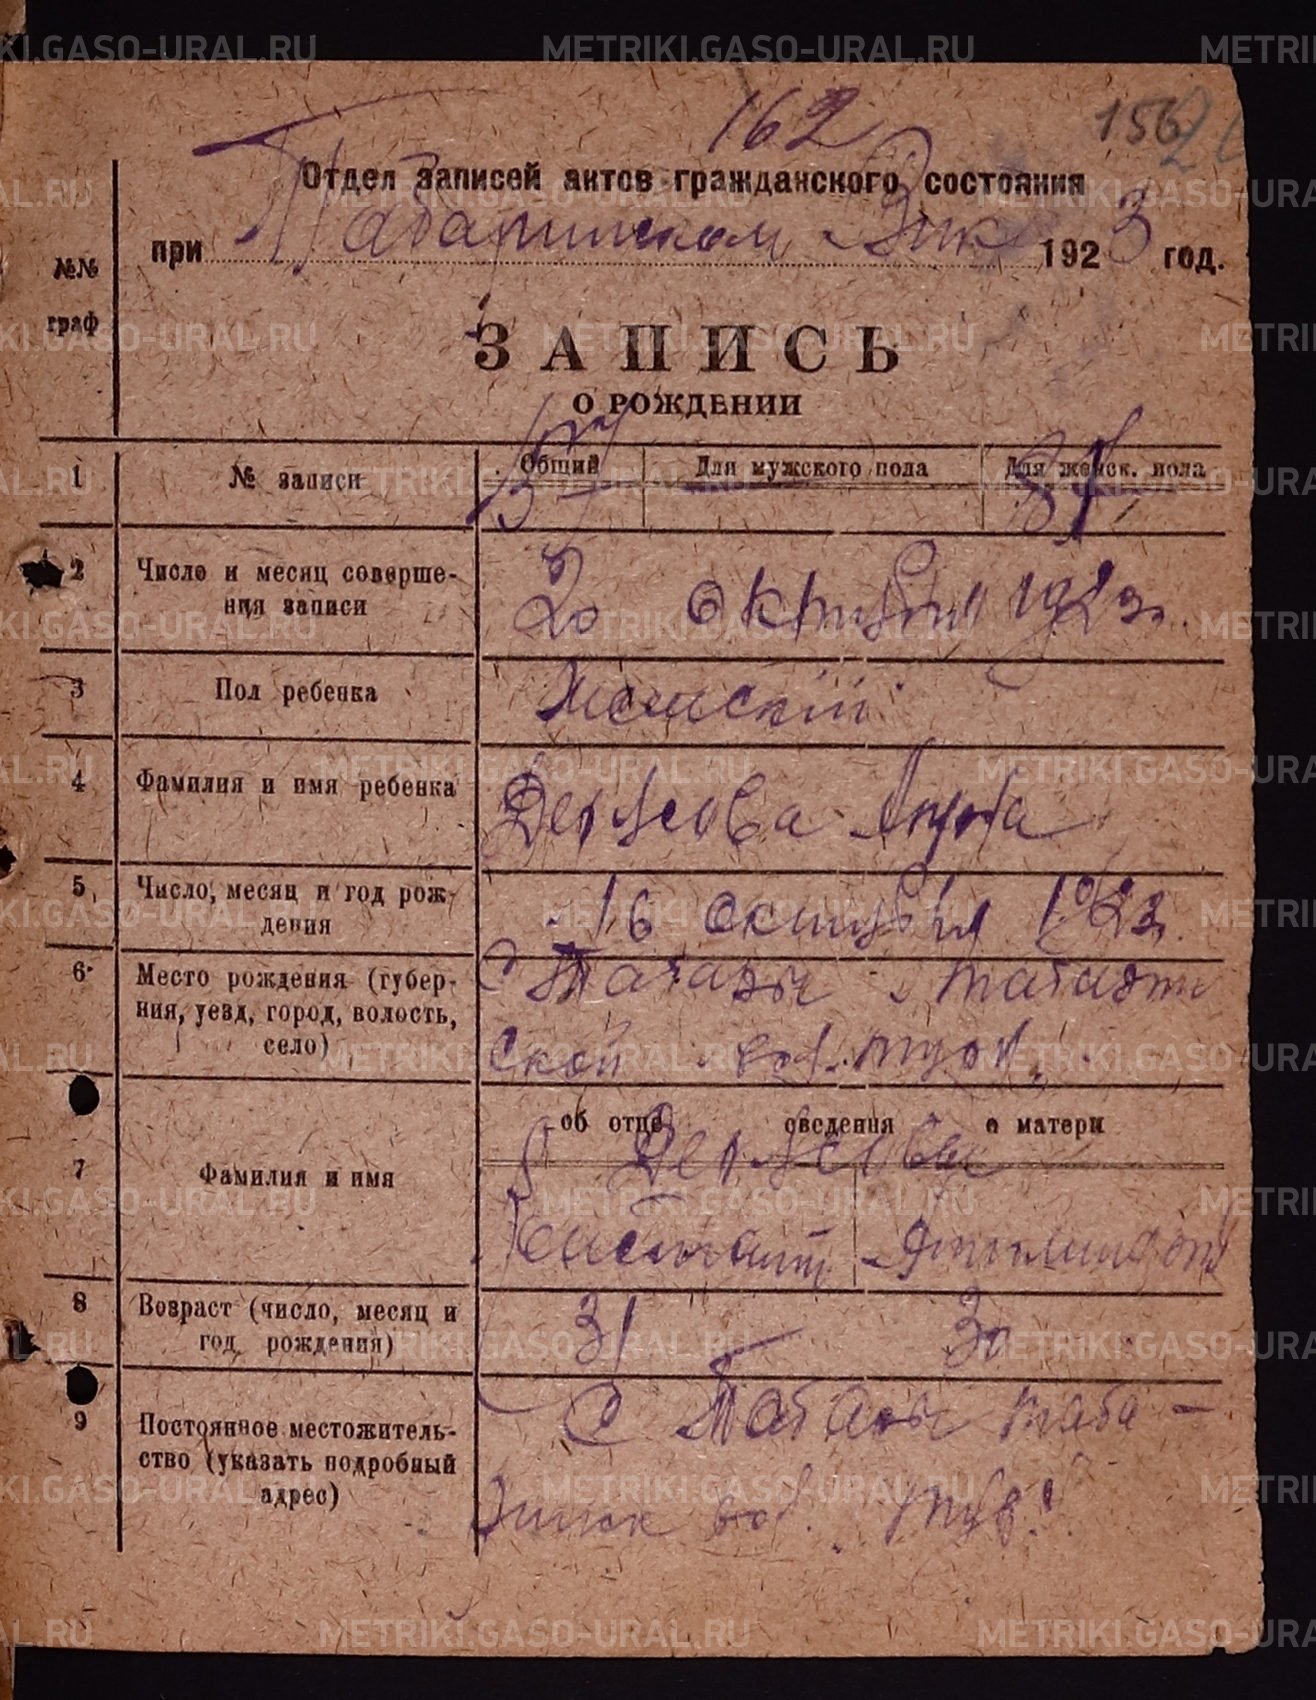 METRIKI.GASO-URAL.RU
162
156
Отдел записей актов гражданского состояния
при Табаринском Вике 1923 год.
№№ граф
ЗАПИСЬ
О РОЖДЕНИИ
1 № записи Общий Для мужского пола Для женск. пола
157 81
2 Число и месяц совершения записи
20 октября 1923 г.
3 Пол ребенка Женский
4 Фамилия и имя ребенка
5 Число, месяц и год рождения 16 октября 1923 г.
6 Место рождения (губерния, уезд, город, волость, село)
С Табары Табарин
ской вол.
об отце сведения о матери
7 Фамилия и имя
8 Возраст (число, месяц и год рождения) 31 — 30
9 Постоянное местожительство (указать подробный адрес)
С Табары Таба-
ринск вол.